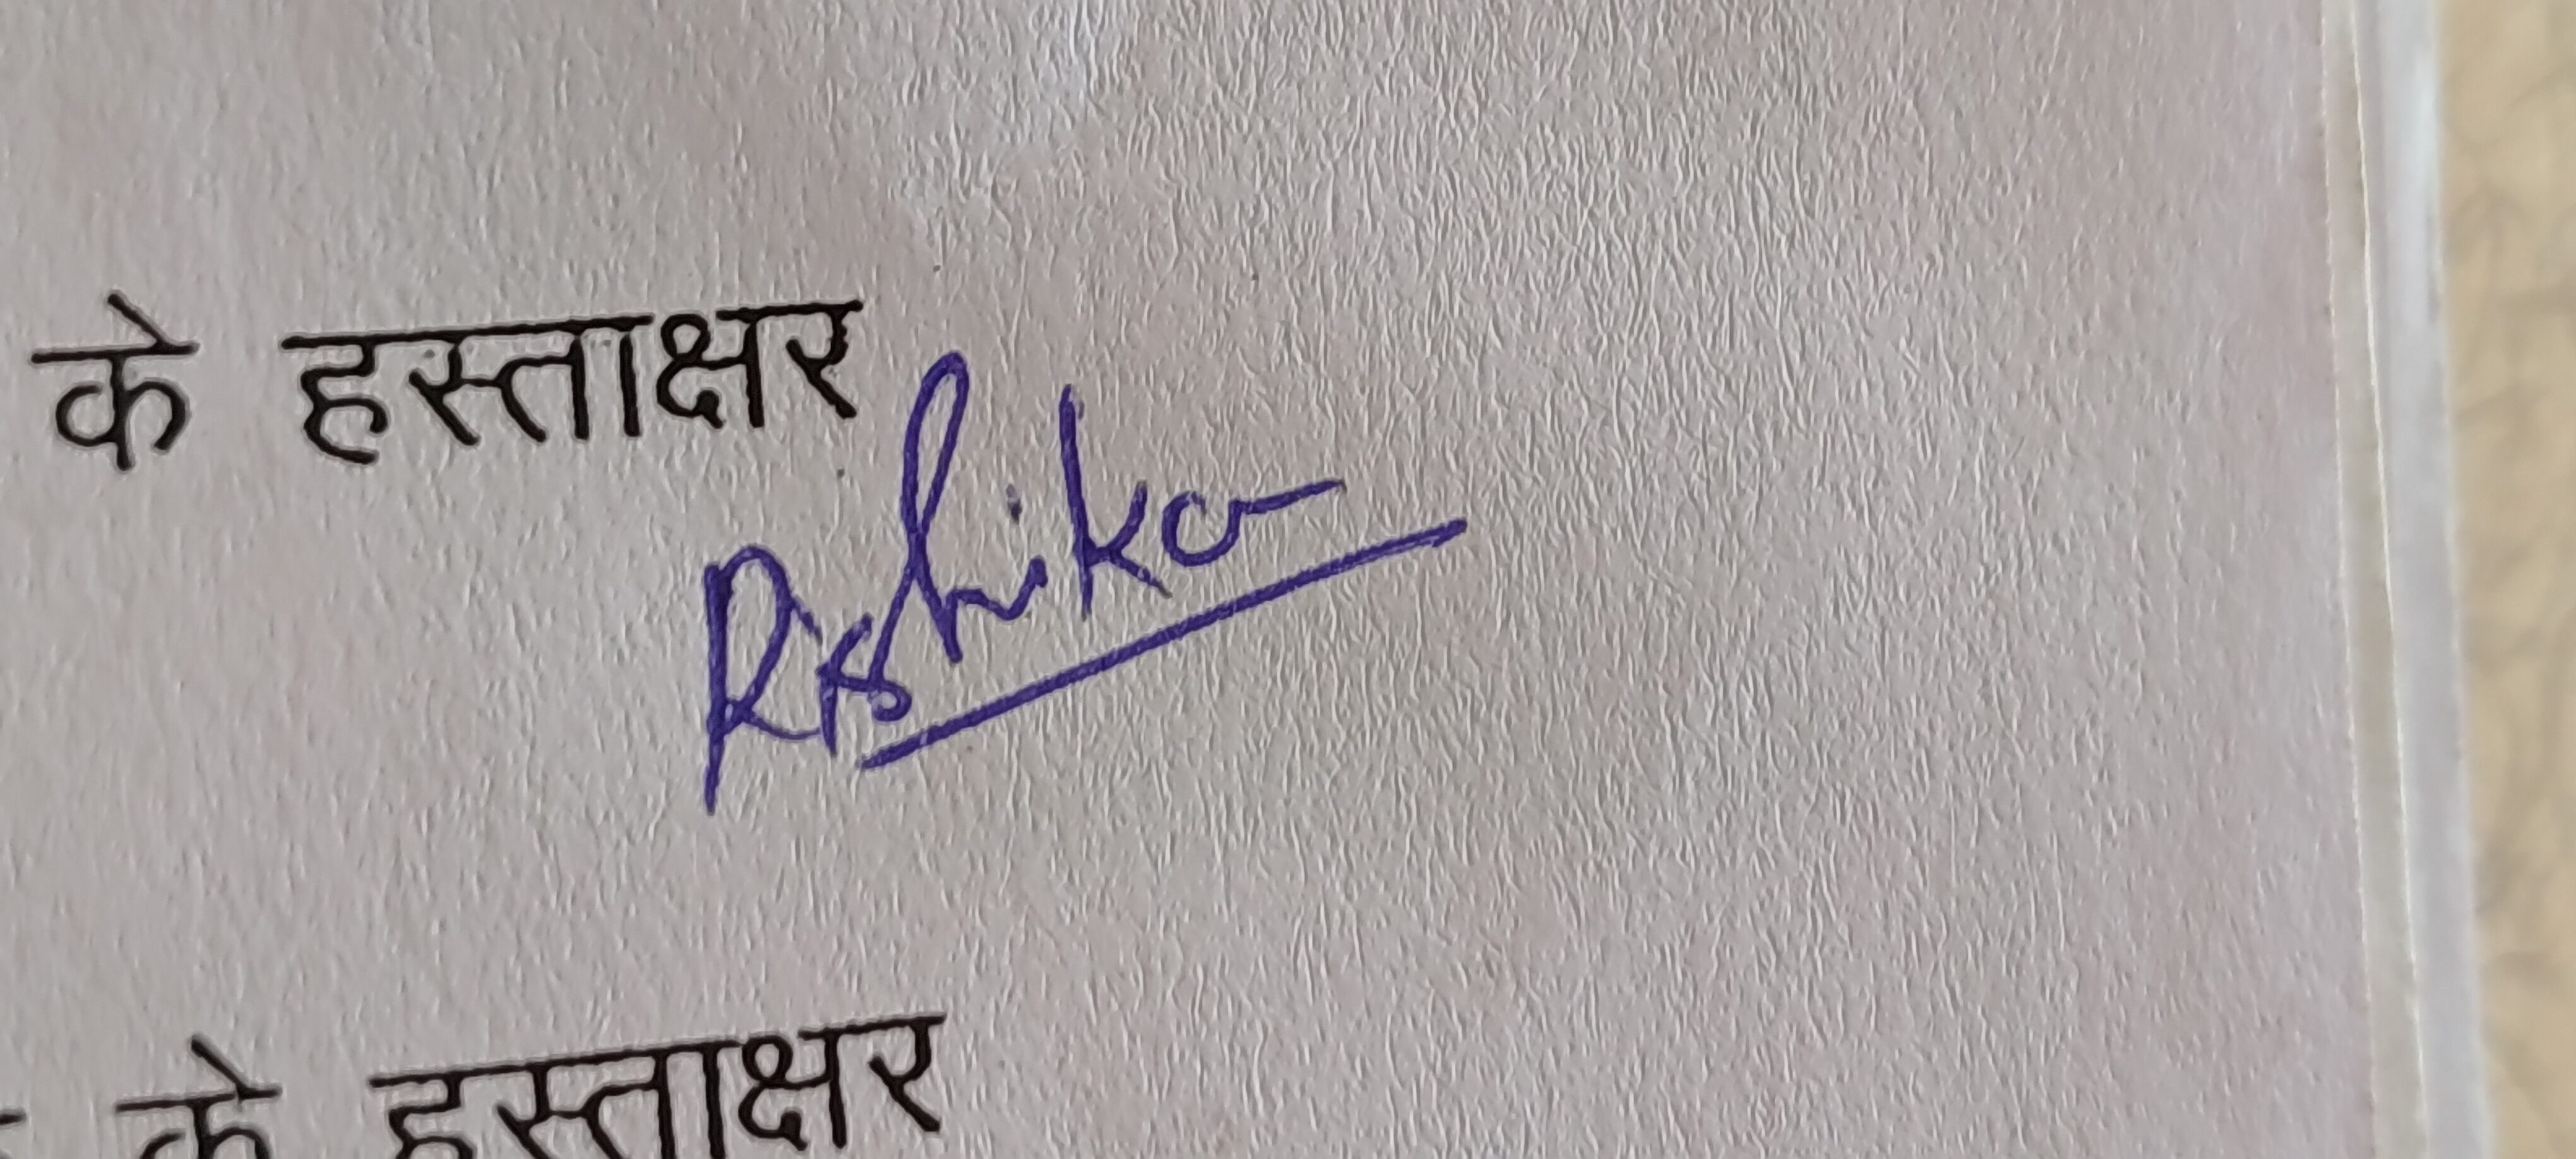 के हस्ताक्षर
Rishika
के हस्ताक्षर